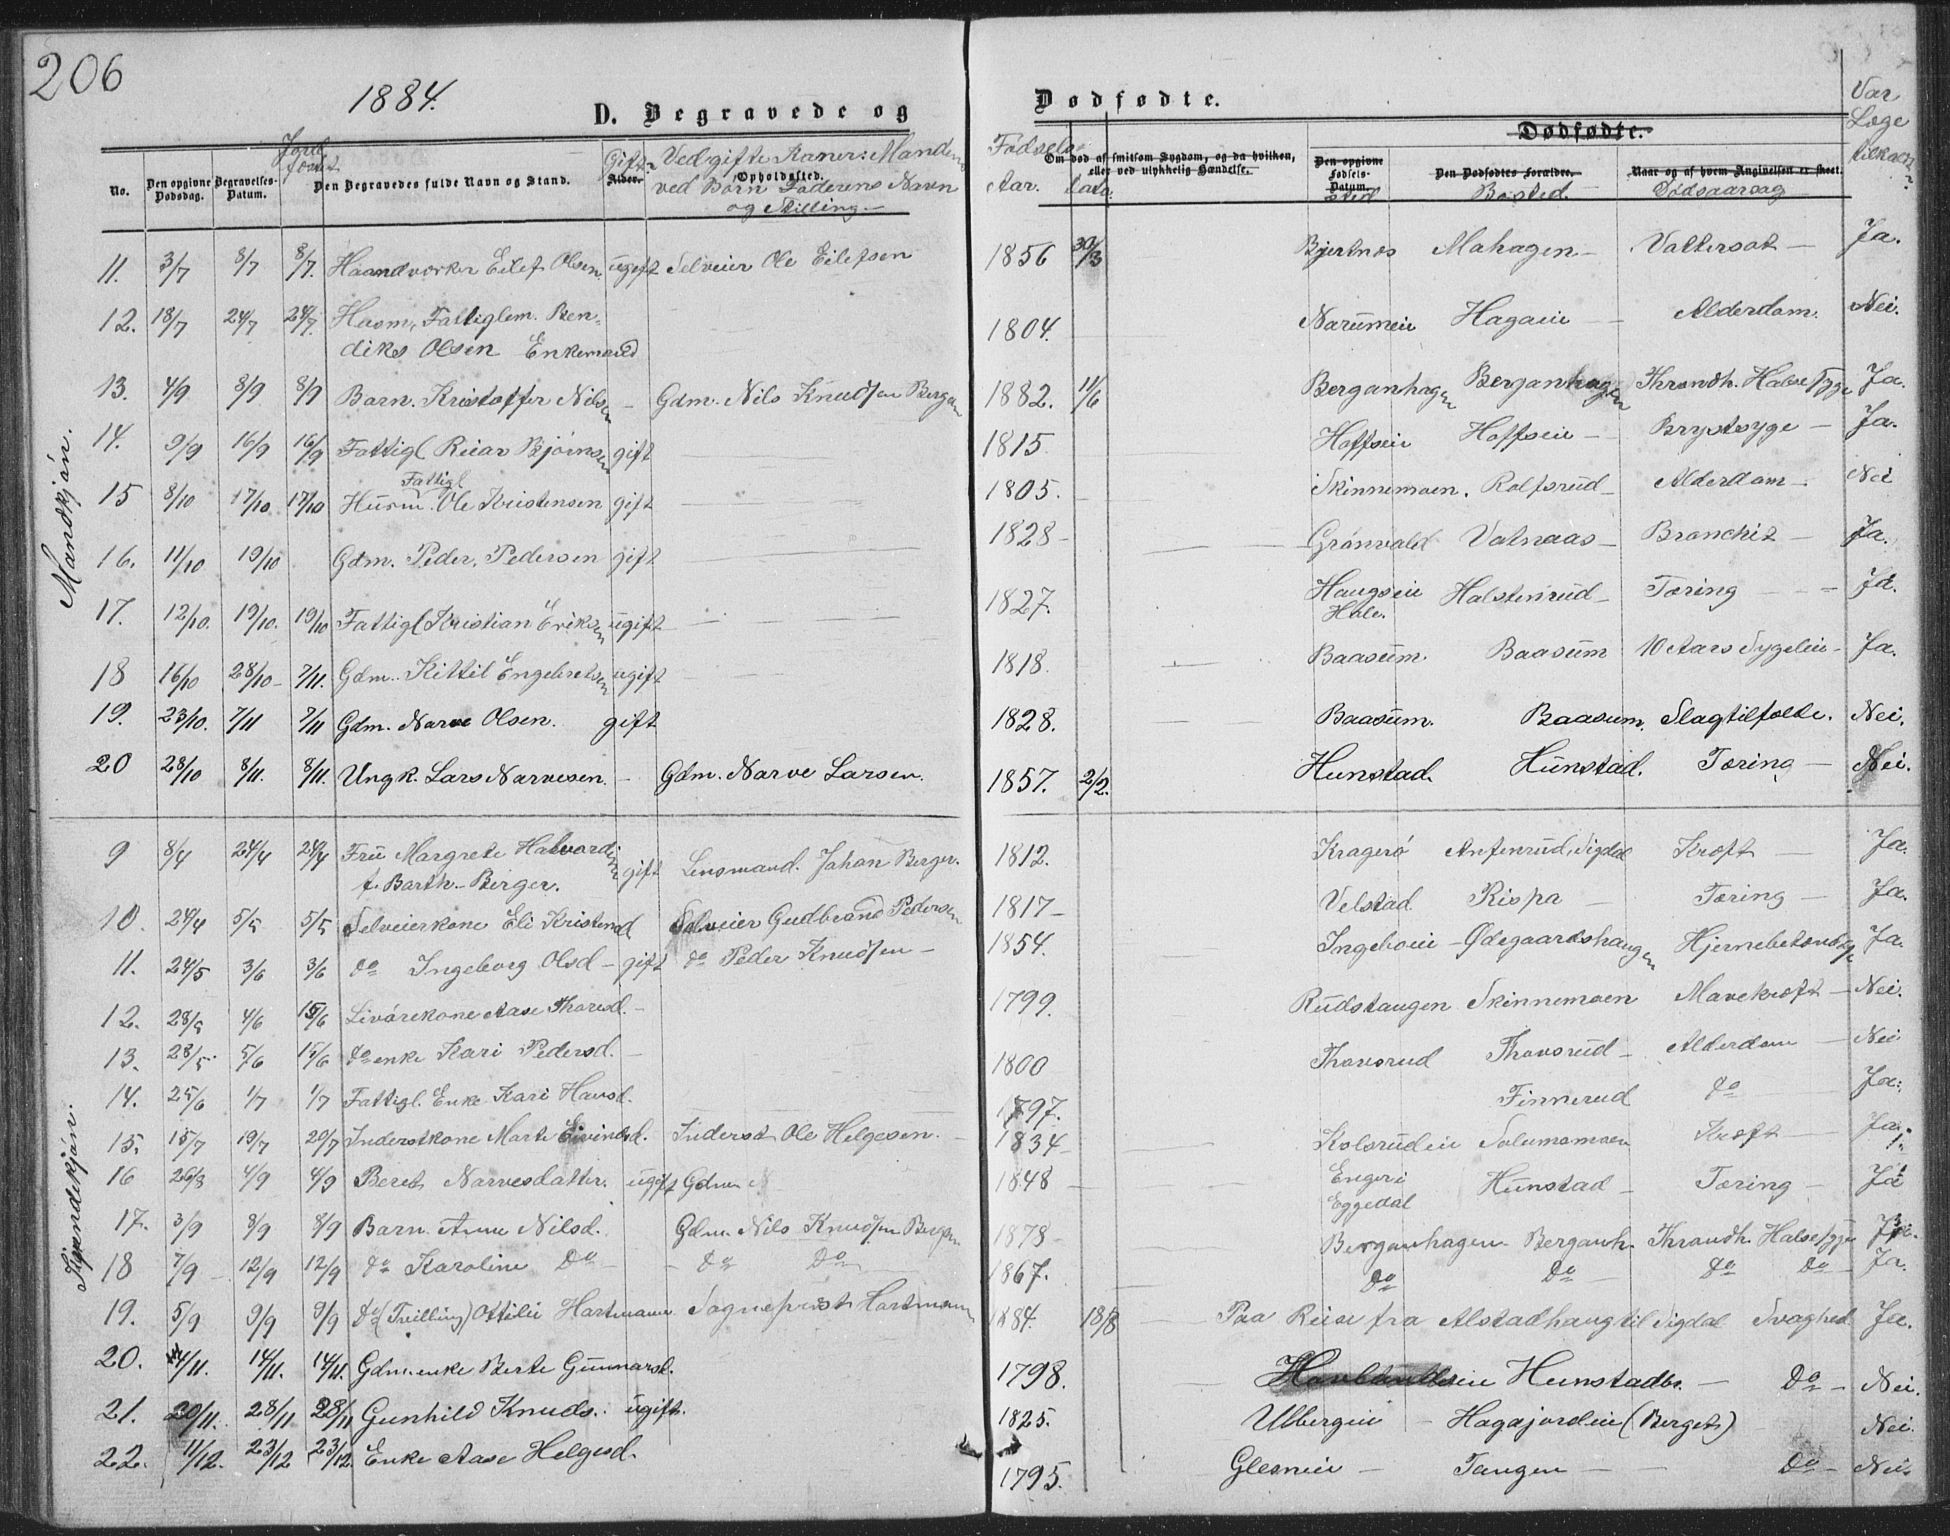 206
1884.
D. Begravede og
Dødfødte.
No.
Den opgivne Dødsdag.
Begravelses-Datum.
Jord fæstet
Den Begravedes fulde Navn og Stand.
Gift?
Alder.
Opholdssted.
Ved gifte Koner: Manden
ved Børn Faderens Navn
og Stilling.
Fødsels
Aar. Data.
Om død af smitsom Sygdom, og da hvilken, eller ved ulykkelig Hændelse.
Dødfødte.
Den opgivne Fødsels-Datum. sted
Den Dødfødtes Forældre. Bosted.
Naar og af hvem Angivelsen er skeet. Dødsaarsag
Var Læge tilkaldt?
Mandkjøn.
11. 3/7 8/7 8/7. Haandværker Eilef Olsen ugift Selveier Ole Eilefsen 1856 30/3 Bjertnæs Mohagen - Vattersot - Ja.
12. 18/7 24/7 24/7. Husm. Fattiglem. Bendiks Olsen Enkemand 1804. Narumeie Hagaeie - Alderdom. Nei.
13. 4/9 8/9 8/9 Barn. Kristoffer Nilsen - Gdm. Nils Knudsen Bergan 1882. 11/6 Berganhagen Berganhagen Throndh. Halsesyge Ja.
14. 9/9 16/9 16/9 Fattigl Reiar Bjørnsen gift 1815 Hoffseie Hoffseie - Brystsyge - Ja.
15 8/10 17/10 17/10 Husm. Fattigl Ole Kristensen gift 1805. Skinnemoen. Rolfsrud - Alderdom - Nei
16. 11/10 19/10 Gdm. Peder Pedersen gift 1828 - Grønvold Vatnaas - Bronchit - Ja.
17. 12/10. 19/10. 19/10 Fattigl Kristian Eriksen ugift 1827. Haugseie Hole. Halstenrud - Tæring - Ja.
18 16/10 28/10 - 7/11. Gdm. Kittil Engebretsen ugift 1818. Baasum. Baasum 10 Aars Sygeleie - Ja.
19. 23/10. 7/11 7/11 Gdm. Narve Olsen. gift 1828. Baasum. Baasum. Slagtilfælde. Nei.
20 28/10 8/11. 8/11. Ungk. Lars Narvesen. - Gdm. Narve Larsen. 1857. 2/2. Hunstad. Hunstad. Tæring - Nei.
Kvindekjøn.
9 8/4 24/4 24/4 Fru Margrete Halvardine f. Barth - Berger. gift Lensmand. Johan Berger. 1812. Kragerø Anfinrud, Sigdal Kræft - Ja.
10. 24/4 5/5 5/5 Selveierkone Eli Kristensd Selveier Gudbrand Pedersen 1817 - Velstad Rispa - Tæring - Ja.
11. 24/5 3/6 3/6 do Ingeborg Olsd - gift do Peder Knudsen - 1854. Ingeboeie - Ødegaardshaugen Hjernebetændelse Ja.
12. 28/5 4/6 15/6 Livørekone Aase Thoresd. - 1799. Rudstangen Skinnemoen Mavekræft - Nei.
13. 28/5 5/6 15/6 do enke Kari Pedersd. - 1800 Thovsrud Thovsrud - Alderdom - Nei
14. 25/6 1/7 1/7 Fattigl. Enke Kari Hansd. 1797. Finnerud do Ja.
15. 15/7 19/7 20/7 Inderstkone Marte Eivindsd. Inderst Ole Helgesen. - 1834 - Kolsrudeie Solumsmoen Kræft Ja.
16 26/8 4/9 4/9 Berit Narvesdatter. ugift Gdm N 1848 Engeri Eggedal Hunstad - Tæring - Ja
17. 3/9 8/9 8/9 Barn Anne Nilsd. Gdm. Nils Knudsen Bergan 1878 - Berganhagen Berganh. Throndh. Halsesyge Ja.
18 7/9 - 12/9 12/9 do Karoline Do - do Do 1867. do Do do do - Ja.
19. 5/9 9/9 9/9 do (Tvilling) Ottilie Hartmann Sogneprest Hartmann 1884. 18/8 Paa Reise fra Alstadhaug til Sigdal Svaghed Ja.
20. 4/11. 14/11. 14/11. Gdm. enke Berte Gunnarsd. 1798. Hunstadbr. - Do - Nei.
21. 20/11. 28/11 28/11 Gunhild Knuds. ugift. 1825. Ulbergeie - Hagajordeie (Berget) Nei.
22. 11/12. 23/12 23/12. Enke Aase Helgesd. 1795. Glesneie - Tangen - Do - Nei.